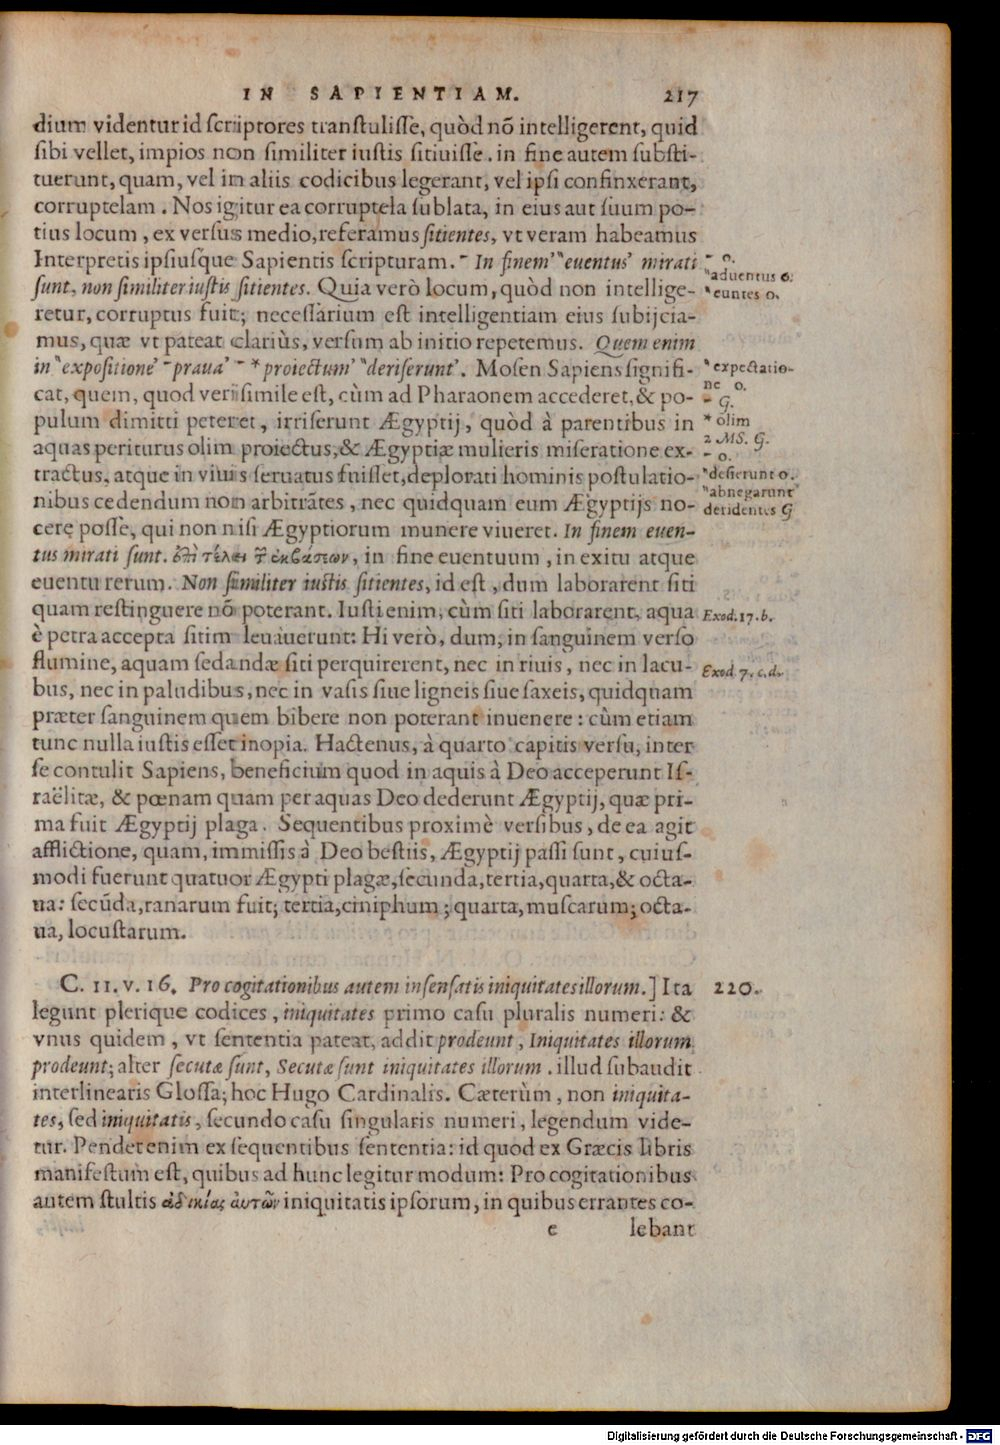 IN SAPIENTIAM. 217
dium videntur id scriptores transtulisse, quòd nõ intelligerent, quid
sibi vellet, impios non similiter iustis sitiuisse. in fine autem substi-
tuerunt, quam, vel in aliis codicibus legerant, vel ipsi confinxerant,
corruptelam. Nos igitur ea corruptela sublata, in eius aut suum po-
tius locum, ex versus medio, referamus sitientes, vt veram habeamus
Interpretis ipsiusque Sapientis scripturam. - In finem' "euentus' mirati
sunt, non similiter iustis sitientes. Quia verò locum, quòd non intellige-
retur, corruptus fuit; necessarium est intelligentiam eius subijcia-
mus, quæ vt pateat clariùs, versum ab initio repetemus. Quem enim
in "expositione' - praua' - * proiectum' "deriserunt'. Mosen Sapiens signifi-
cat, quem, quod veri simile est, cùm ad Pharaonem accederet, & po-
pulum dimitti peteret, irriserunt Ægyptij, quòd à parentibus in
aquas periturus olim proiectus, & Ægyptiæ mulieris miseratione ex-
tractus, atque in viuis seruatus fuisset, deplorati hominis postulatio-
nibus cedendum non arbitrãtes, nec quidquam eum Ægyptijs no-
cere posse, qui non nisi Ægyptiorum munere viueret. In finem euen-
tus mirati sunt. ἐπὶ τέλει τῶν ἐκβάσεων, in fine euentuum, in exitu atque
euentu rerum. Non similiter iustis sitientes, id est, dum laborarent siti
quam restinguere nõ poterant. Iusti enim, cùm siti laborarent, aqua
è petra accepta sitim leuauerunt: Hi verò, dum, in sanguinem verso
flumine, aquam sedandæ siti perquirerent, nec in riuis, nec in lacu-
bus, nec in paludibus, nec in vasis siue ligneis siue saxeis, quidquam
præter sanguinem quem bibere non poterant inuenere: cùm etiam
tunc nulla iustis esset inopia. Hactenus, à quarto capitis versu, inter
se contulit Sapiens, beneficium quod in aquis à Deo acceperunt Is-
raëlitæ, & pœnam quam per aquas Deo dederunt Ægyptij, quæ pri-
ma fuit Ægyptij plaga. Sequentibus proximè versibus, de ea agit
afflictione, quam, immissis à Deo bestiis, Ægyptij passi sunt, cuius-
modi fuerunt quatuor Ægypti plagæ, secunda, tertia, quarta, & octa-
ua: secũda, ranarum fuit; tertia, ciniphum; quarta, muscarum; octa-
ua, locustarum.
- o.
"aduentus o.
"euntes o.
"expectatio-
ne o.
- G.
* olim
2 MS. G.
- o.
"deserunt o.
"abnegarunt
deridentes G
Exod. 17. b.
Exod. 7. c. d.
C. 11. v. 16. Pro cogitationibus autem insensatis iniquitates illorum.] Ita 220.
legunt plerique codices, iniquitates primo casu pluralis numeri: &
vnus quidem, vt sententia pateat, addit prodeunt, Iniquitates illorum
prodeunt; alter secutæ sunt, Secutæ sunt iniquitates illorum. illud subaudit
interlinearis Glossa; hoc Hugo Cardinalis. Cæterùm, non iniquita-
tes, sed iniquitatis, secundo casu singularis numeri, legendum vide-
tur. Pendet enim ex sequentibus sententia: id quod ex Græcis libris
manifestum est, quibus ad hunc legitur modum: Pro cogitationibus
autem stultis ἀδικίας αὐτῶν iniquitatis ipsorum, in quibus errantes co-
e lebant
Digitalisierung gefördert durch die Deutsche Forschungsgemeinschaft - DFG